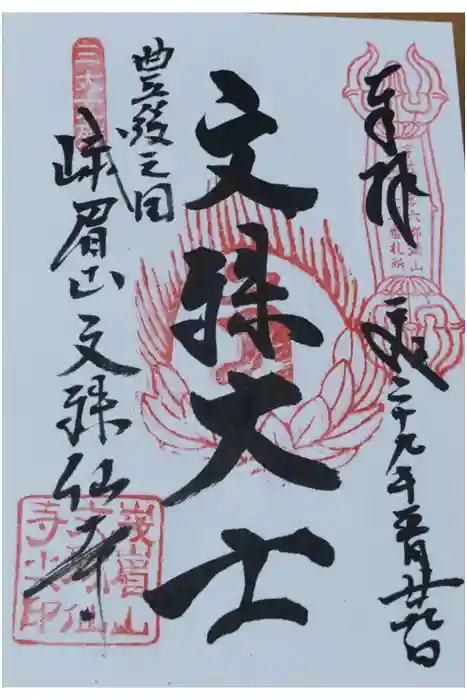 奉拝
平成二十九年五月廿九日
文殊大士
豊後之国
峨眉山文殊仙寺
三大文殊
峨眉山
文殊仙
寺之印